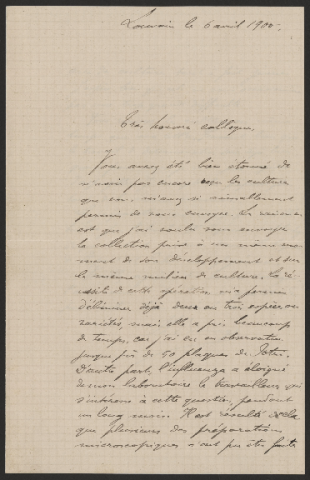 Louvain le 6 avril 1900.
Très honoré collègue,
Vous aurez été bien étonné de
n'avoir pas encore reçu les cultures
que vous m'aviez si aimablement
permis de vous envoyer. La raison
est que j'ai voulu vous envoyer
la collection prise à un même mo-
ment de son développement et sur
le même milieu de culture. La ré-
ussite de cette opération m'a permis
d'éliminer déjà deux ou trois espèces ou
variétés, mais elle a pris beaucoup
de temps, car j'ai eu en observation
jusque près de 50 plaques de Petri.
D'autre part, l'influenza a éloigné
de mon laboratoire le travailleur qui
s'intéresse à cette question, pendant
un long mois. Il est résulté de là
que plusieurs des préparations
microscopiques n'ont pu être faites